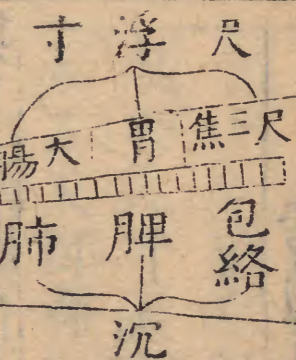 寸 浮 尺
腸大 胃 焦三尺
肺 脾 包絡
沉